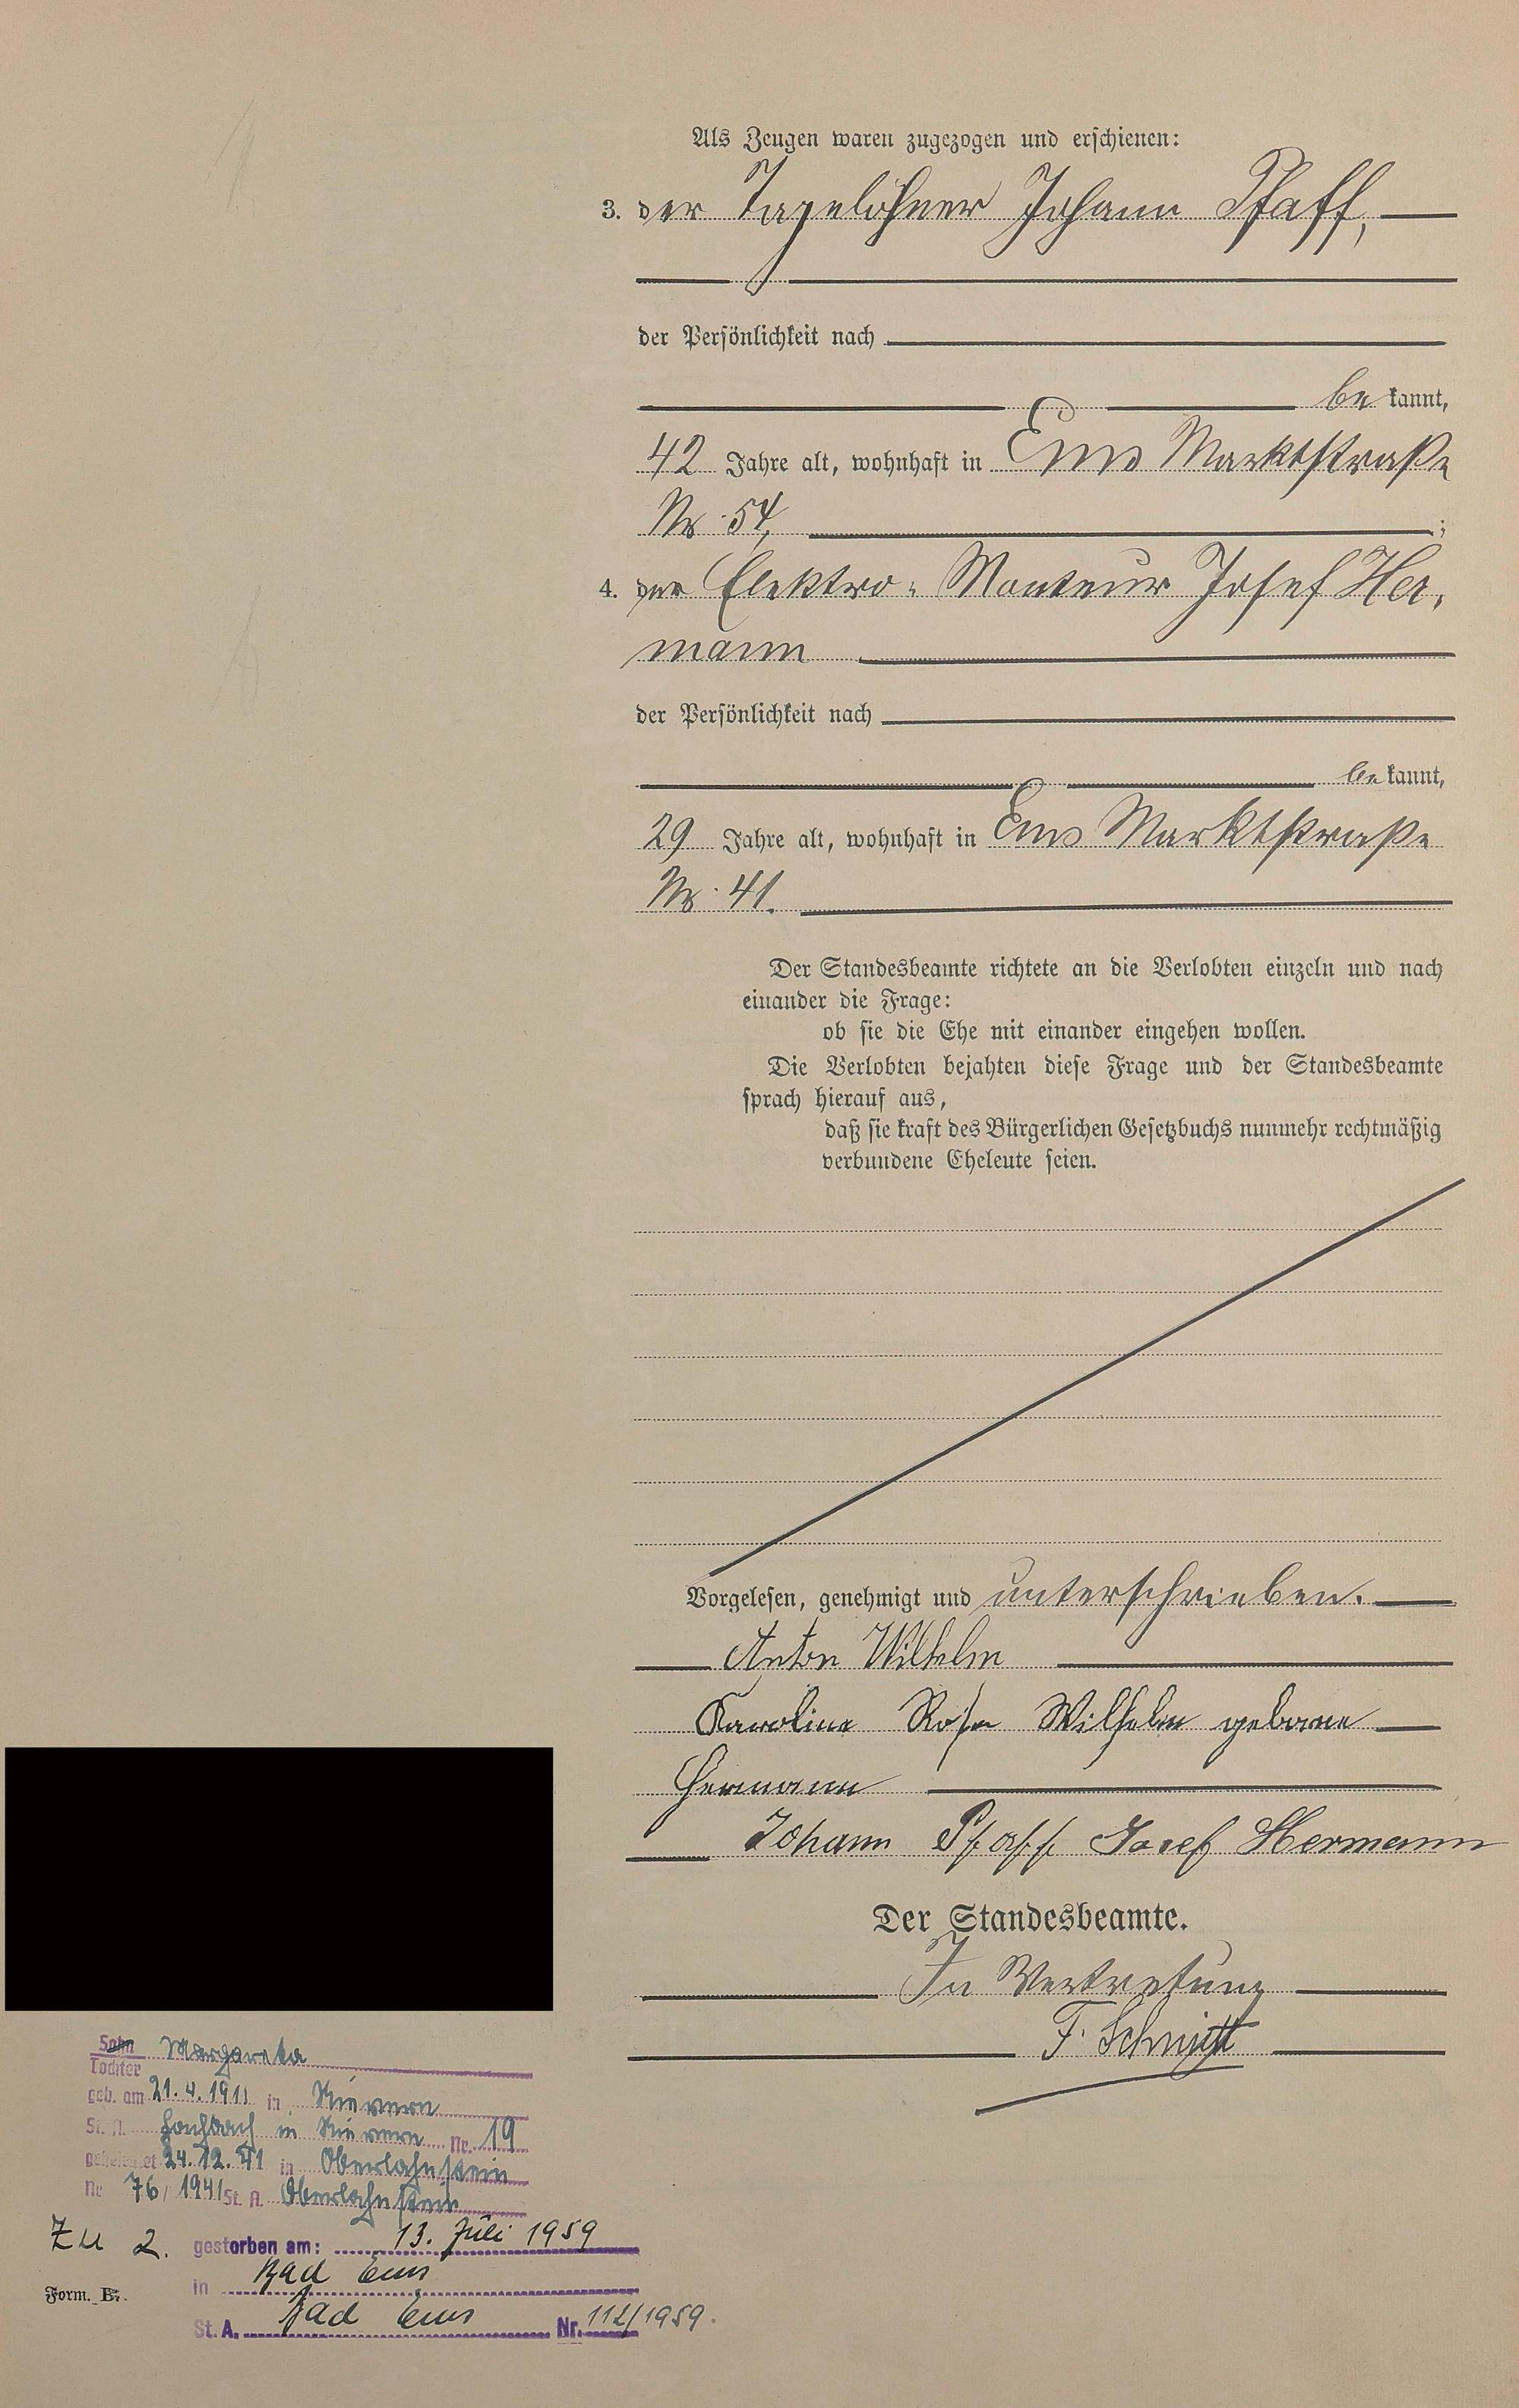 Als Zeugen waren zugezogen und erschienen:
3. der Tagelöhner Johann Pfaff,
der Persönlichkeit nach
be kannt,
42 Jahre alt, wohnhaft in Ems Marktstraße
Nr. 54, ;
4. der Elektro-Monteur Josef Her-
mann
der Persönlichkeit nach
be kannt,
29 Jahre alt, wohnhaft in Ems Marktstraße
Nr. 41.
Der Standesbeamte richtete an die Verlobten einzeln und nach
einander die Frage:
ob sie die Ehe mit einander eingehen wollen.
Die Verlobten bejahten diese Frage und der Standesbeamte
sprach hierauf aus,
daß sie kraft des Bürgerlichen Gesetzbuchs nunmehr rechtmäßig
verbundene Eheleute seien.
Vorgelesen, genehmigt und unterschrieben.
Anton Wilhelm
Karoline Rosa Wilhelm geborne
Hermann
Johann Pfaff Josef Hermann
Der Standesbeamte.
In Vertretung
F. Schmitt
Sohn
Tochter Margareta
geb. am 21.4.1911 in Nievern
St. A. Fachbach in Nievern Nr. 19
geheiratet 24.12.41 in Oberlahnstein
Nr. 76/1941 St. A. Oberlahnstein
Zu 2. gestorben am: 13. Juli 1959
in Bad Ems
Form. B.
St. A. Bad Ems Nr. 112/1959.